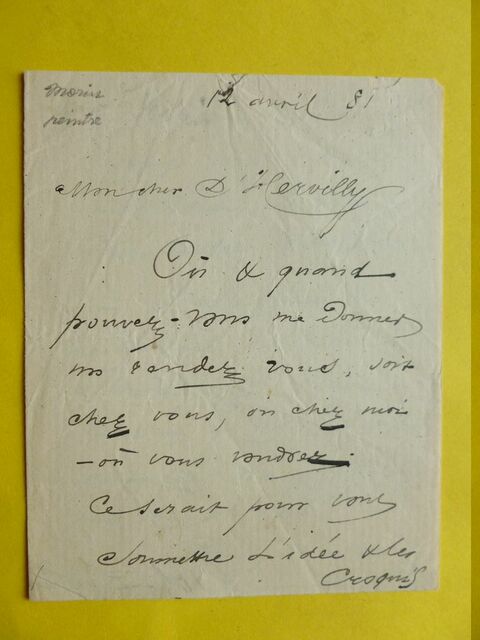 Morin
peintre
12 avril 81
Mon cher D'Hervilly
Où & quand
pouvez-vous me donner
un rendez vous, soit
chez vous, ou chez moi
– où vous voudrez.
Ce serait pour vous
soumettre l'idée & les
croquis